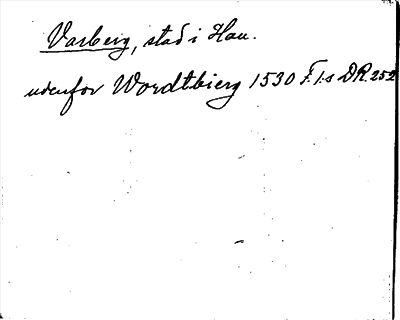 Varberg, stad i Hall.
udenfor Wordtbierg 1530 F.I.s DR. 252